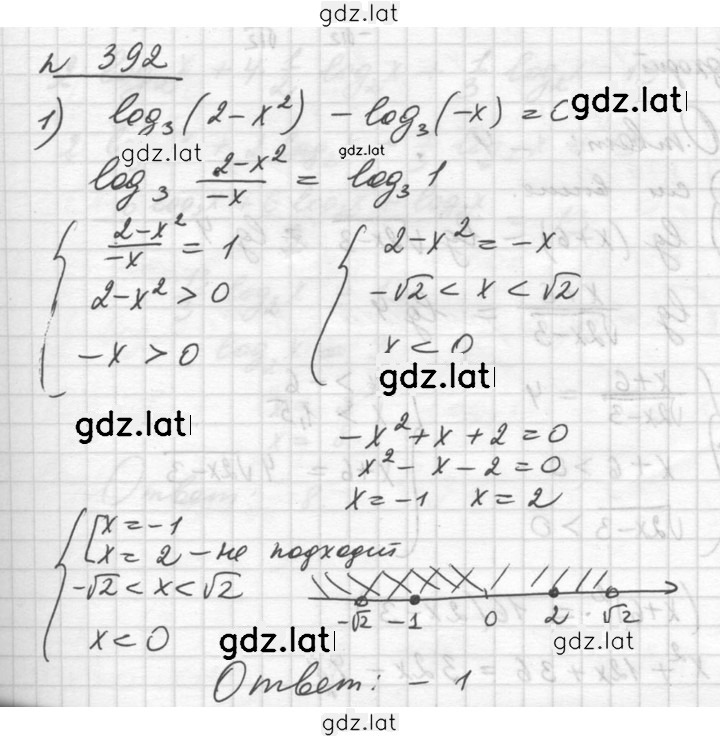 gdz.lat
n 392
1) log₃(2-x²) - log₃(-x) = 0 gdz.lat
gdz.lat gdz.lat
log₃ (2-x²)/(-x) = log₃ 1
{ (2-x²)/(-x) = 1 { 2-x² = -x
2-x² > 0 -√2 < x < √2
-x > 0 x < 0
gdz.lat
gdz.lat
-x² + x + 2 = 0
x² - x - 2 = 0
x = -1 x = 2
{ [ x = -1
x = 2 - не подходит
-√2 < x < √2
-√2 -1 0 2 √2
x < 0 gdz.lat gdz.lat
Ответ: -1
gdz.lat